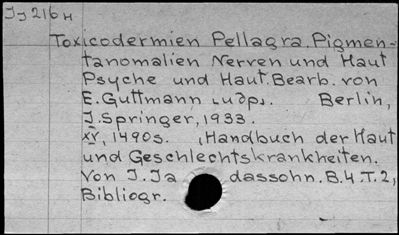 Jj 216 H
Toxicodermien Pellagra. Pigmen-
tanomalien Nerven und Haut
Psyche und Haut. Bearb. von
E. Guttmann u. dp. Berlin,
J. Springer, 1933.
XV, 1490s. (Handbuch der Haut
und Geschlechtskrankheiten.
Von J. Ja dassohn. B. 4. T. 2,
Bibliogr.